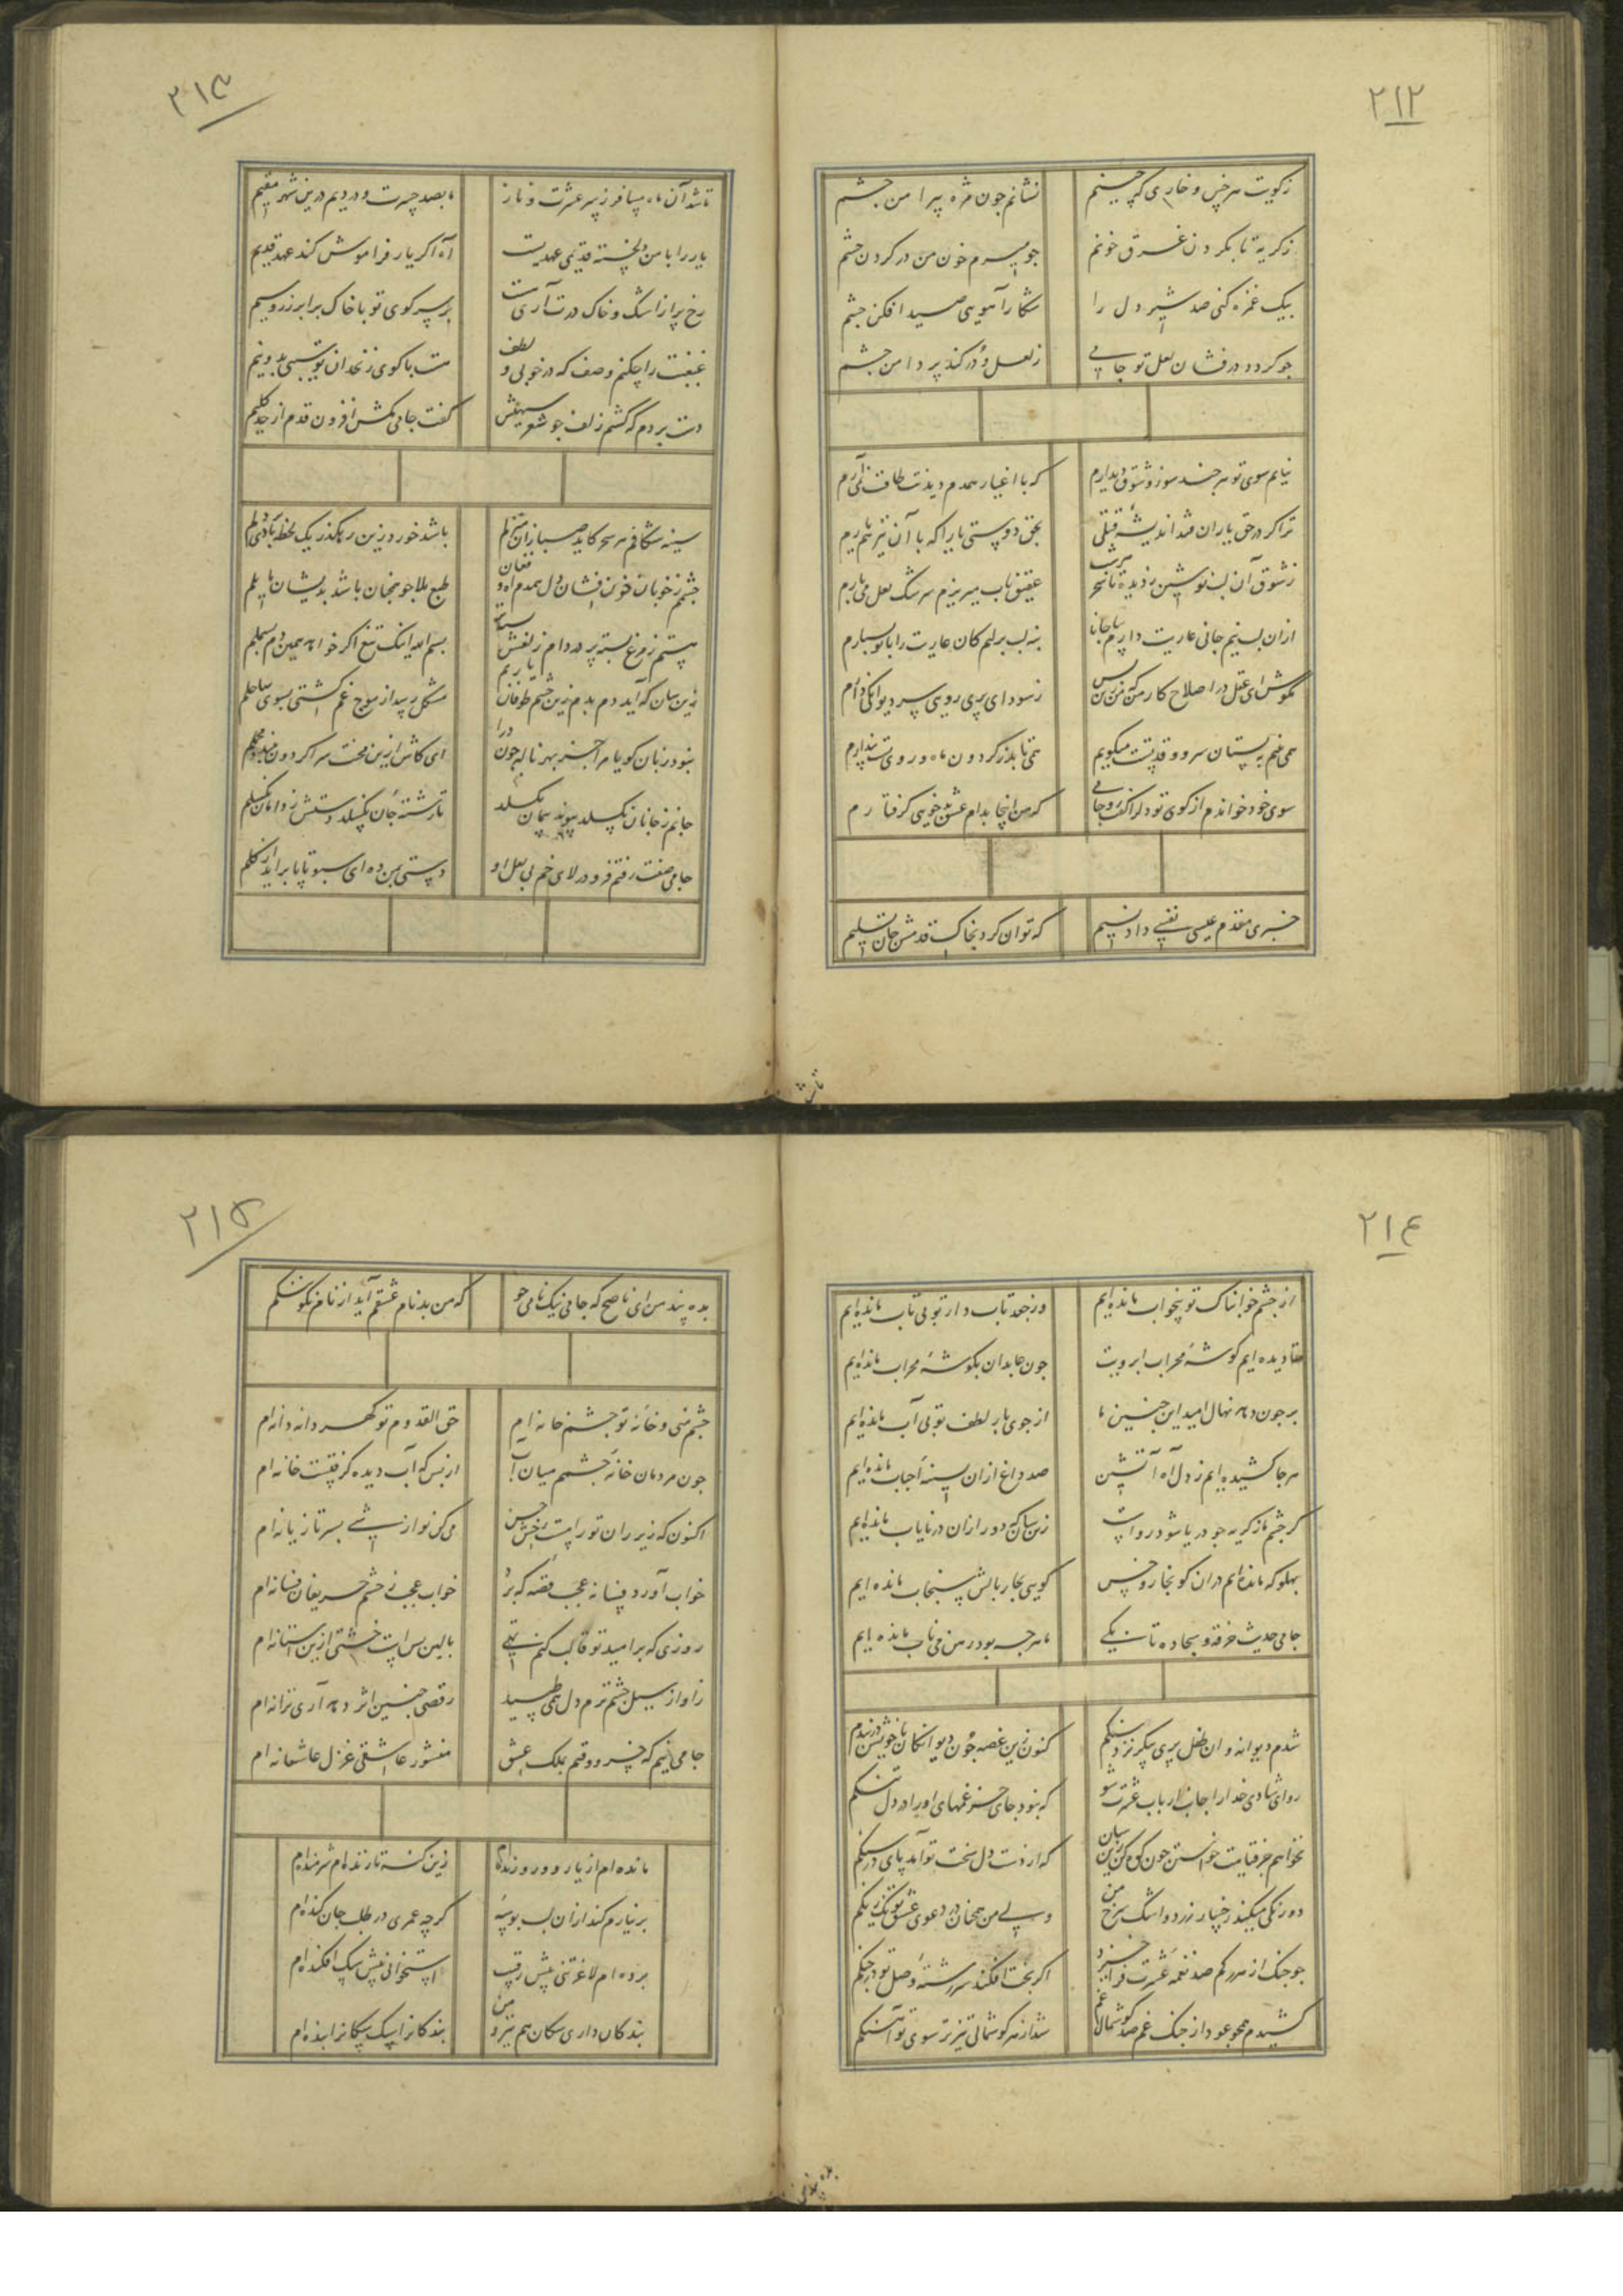 ٢١٢
ز کویت هر خس و خاری که چینم نشانم چون مژه پیرامن چشم
ز گریه تا بگردن غرق خونم چو میرم خون من در گردن چشم
بیک غمزه کنی صد شیر دل را شکار آهوی صید افکن چشم
چو گردد در فشان لعل تو جامی ز لعل و در کند پر دامن چشم
نیایم سوی تو هر چند سوز و شوق دیدارم که با اغیار همدم دیدنت طاقت نمی آرم
ترا گر در حق یاران شد اندیشه قتلی بحق دوستی یارا که با آن نیز هم یارم
ز شوق آن لب نوشین ز دیده تا سحر هر شب عقیق ناب میریزم سرشک لعل می بارم
ازان لب نیم جانی عاریت دارم بیا جانا بنه لب بر لبم کان عاریت را با تو بسپارم
مکوش ای عقل در اصلاح کار من که من زین پس ز سودای پری رویی سر دیوانگی دارم
همی خسپم به بستان سرو و قد تست میگویم همی تابد ز گردون ماه و روی تست پندارم
سوی خود خواندم از کوی تو دل را گفت رو جامی که من اینجا بدام عشق بدخویی گرفتارم
خبری مقدم عیسی نفسی داد نسیم که توان کرد بخاک قدمش جان تسلیم
٢١٣
تا شد آن ماه مسافر ز سر عشرت و ناز ما بصد حسرت و دردیم درین شهر مقیم
یار را با من دلخسته قدیمی عهدیست آه اگر یار فراموش کند عهد قدیم
رخ پر از اشک و خاک درت آری بر سر کوی تو با خاک برابر زر و سیم
غبغبت را چکنم وصف که در خوبی و لطف هست با گوی زنخدان تو سیبی بدو نیم
دست بردم که کشم زلف چو شعر سیهش گفت جامی مکش افزون قدم از حد گلیم
سینه شکافم هر سحر کاید صبا زان منزلم باشد خورد زین رهگذر یک لحظه بادی بر دلم
چشمم ز خوبان خون فشان دل همدم آه و فغان طبع بلاجو همچنان باشد بدیشان مایلم
هستم ز مرغ بسته پر در دام زلفش بسم الله اینک تیغ اگر خواهد همین دم بسملم
زینسان که آید دم بدم زین چشم طوفان مشکل رسد از موج غم کشتی بسوی ساحلم
نبود زبان گویا مرا جز بهر ناله چون درا ای کاش ازین محنت سرا گردون ببندد محملم
جانم ز جانان نگسلد پیوند پیمان نگسلد تا رشته جان نگسلد دستش ز دامان نگسلم
جامی صفت رفتم فرو در لای خم بی لعل او دستی بمن ده ای سبو تا پا براید از گلم
٢١٤
از چشم خوابناک تو بیخواب مانده ایم وز جعد تاب دار تو بی تاب مانده ایم
تا دیده ایم گوشه محراب ابرویت چون عابدان بگوشه محراب مانده ایم
بر چون دهد نهال امید این چنین که ما از جوی بار لطف تو بی آب مانده ایم
هر جا کشیده ایم ز دل آه آتشین صد داغ ازان بسینه احباب مانده ایم
گر چشم ما ز گریه چو دریا شود رواست زینسان که دور ازان در نایاب مانده ایم
پهلو که مانده ایم دران کو بخار و خس گویی بجار بالش سنجاب مانده ایم
جامی حدیث خرقه و سجاده تا بکی ما هر چه بود در هن می ناب مانده ایم
شدم دیوانه و ان طفل پری پیکر نزد سنگم کنون زین غصه چون دیوانگان با خویش در جنگم
رو ای شادی خدا را جانب ارباب عشرت شو که نبود جای جز غمهای او را در دل تنگم
نخواهم جز قیامت خواستن چون کوه ازین سان که از دست دل سخت تو آمد پای در سنگم
دو رنگی میکند رخسار زرد و اشک سرخ من ولی من همچنان در دعوی عشق تو یک رنگم
چو چنگ از هر رگم صد نغمه عشرت فرا خیزد اگر بخت افکند سر رشته وصل تو در چنگم
کشیدم همچو عود از چنگ غم صد گوشمال اما شد از هر گوشمالی تیزتر سوی تو آهنگم
٢١٥
بده پند من ای ناصح که جامی نیک نامی جو که من بدنام عشقم آید از نام نکو ننگم
چشم منی و خانه تو چشم خانه ام حق القدوم تو گهر دانه دانه ام
چون مردمان خانه چشمم میان آب از بس که آب دیده گرفتست خانه ام
اکنون که زیر ران تو رامست رخش حسن می کن نوازشی بسر تازیانه ام
خواب آورد فسانه عجب قصه که برد خواب عجب ز چشم حریفان فسانه ام
روزی که بر امید تو قالب کنم تهی بالین بس است خشتی ازین آستانه ام
زاواز سیل چشم ترم دل همی طپید رقصی چنین اثر دهد آری ترانه ام
جامی منم که خسرو وقتم بملک عشق منشور عاشقی غزل عاشقانه ام
مانده ام از یار دور و زنده ام زین گنه تا زنده ام شرمنده ام
بر نیارم کند ازان لب بوسه گرچه عمری در طلب جان کنده ام
برده ام لاغر تنی پیش رقیب استخوانی پیش سگ افکنده ام
بندگان داری سگان هم نیز و من بندگانرا سگ سگانرا بنده ام